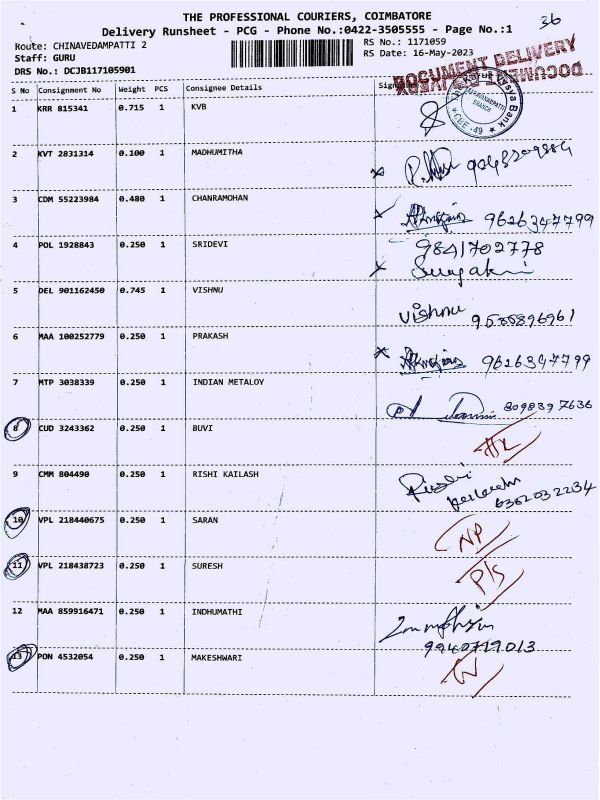 THE PROFESSIONAL COURIERS, COIMBATORE
36
Delivery Runsheet - PCG - Phone No.:0422-3505555 - Page No.:1
Route: CHINAVEDAMPATTI 2
RS No.: 1171059
Staff: GURU
RS Date: 16-May-2023
DRS No.: DCJB117105901
DOCUMENT DELIVERY
S No Consignment No Weight PCS Consignee Details
1 KRR 815341 0.715 1 KVB
CBE -49
2 KVT 2831314 0.100 1 MADHUMITHA
3 CDM 55223984 0.480 1 CHANRAMOHAN 9626347799
4 POL 1928843 0.250 1 SRIDEVI 9841702778
5 DEL 901162450 0.745 1 VISHNU
vishnu 9585896961
6 MAA 100252779 0.250 1 PRAKASH
9626347799
7 MTP 3038339 0.250 1 INDIAN METALOY
8098397636
8 CUD 3243362 0.250 1 BUVI
9 CMM 804490 0.250 1 RISHI KAILASH
6362032234
10 VPL 218440675 0.250 1 SARAN
NP
11 VPL 218438723 0.250 1 SURESH
P/S
12 MAA 859916471 0.250 1 INDHUMATHI
9940719013
13 PON 4532054 0.250 1 MAKESHWARI